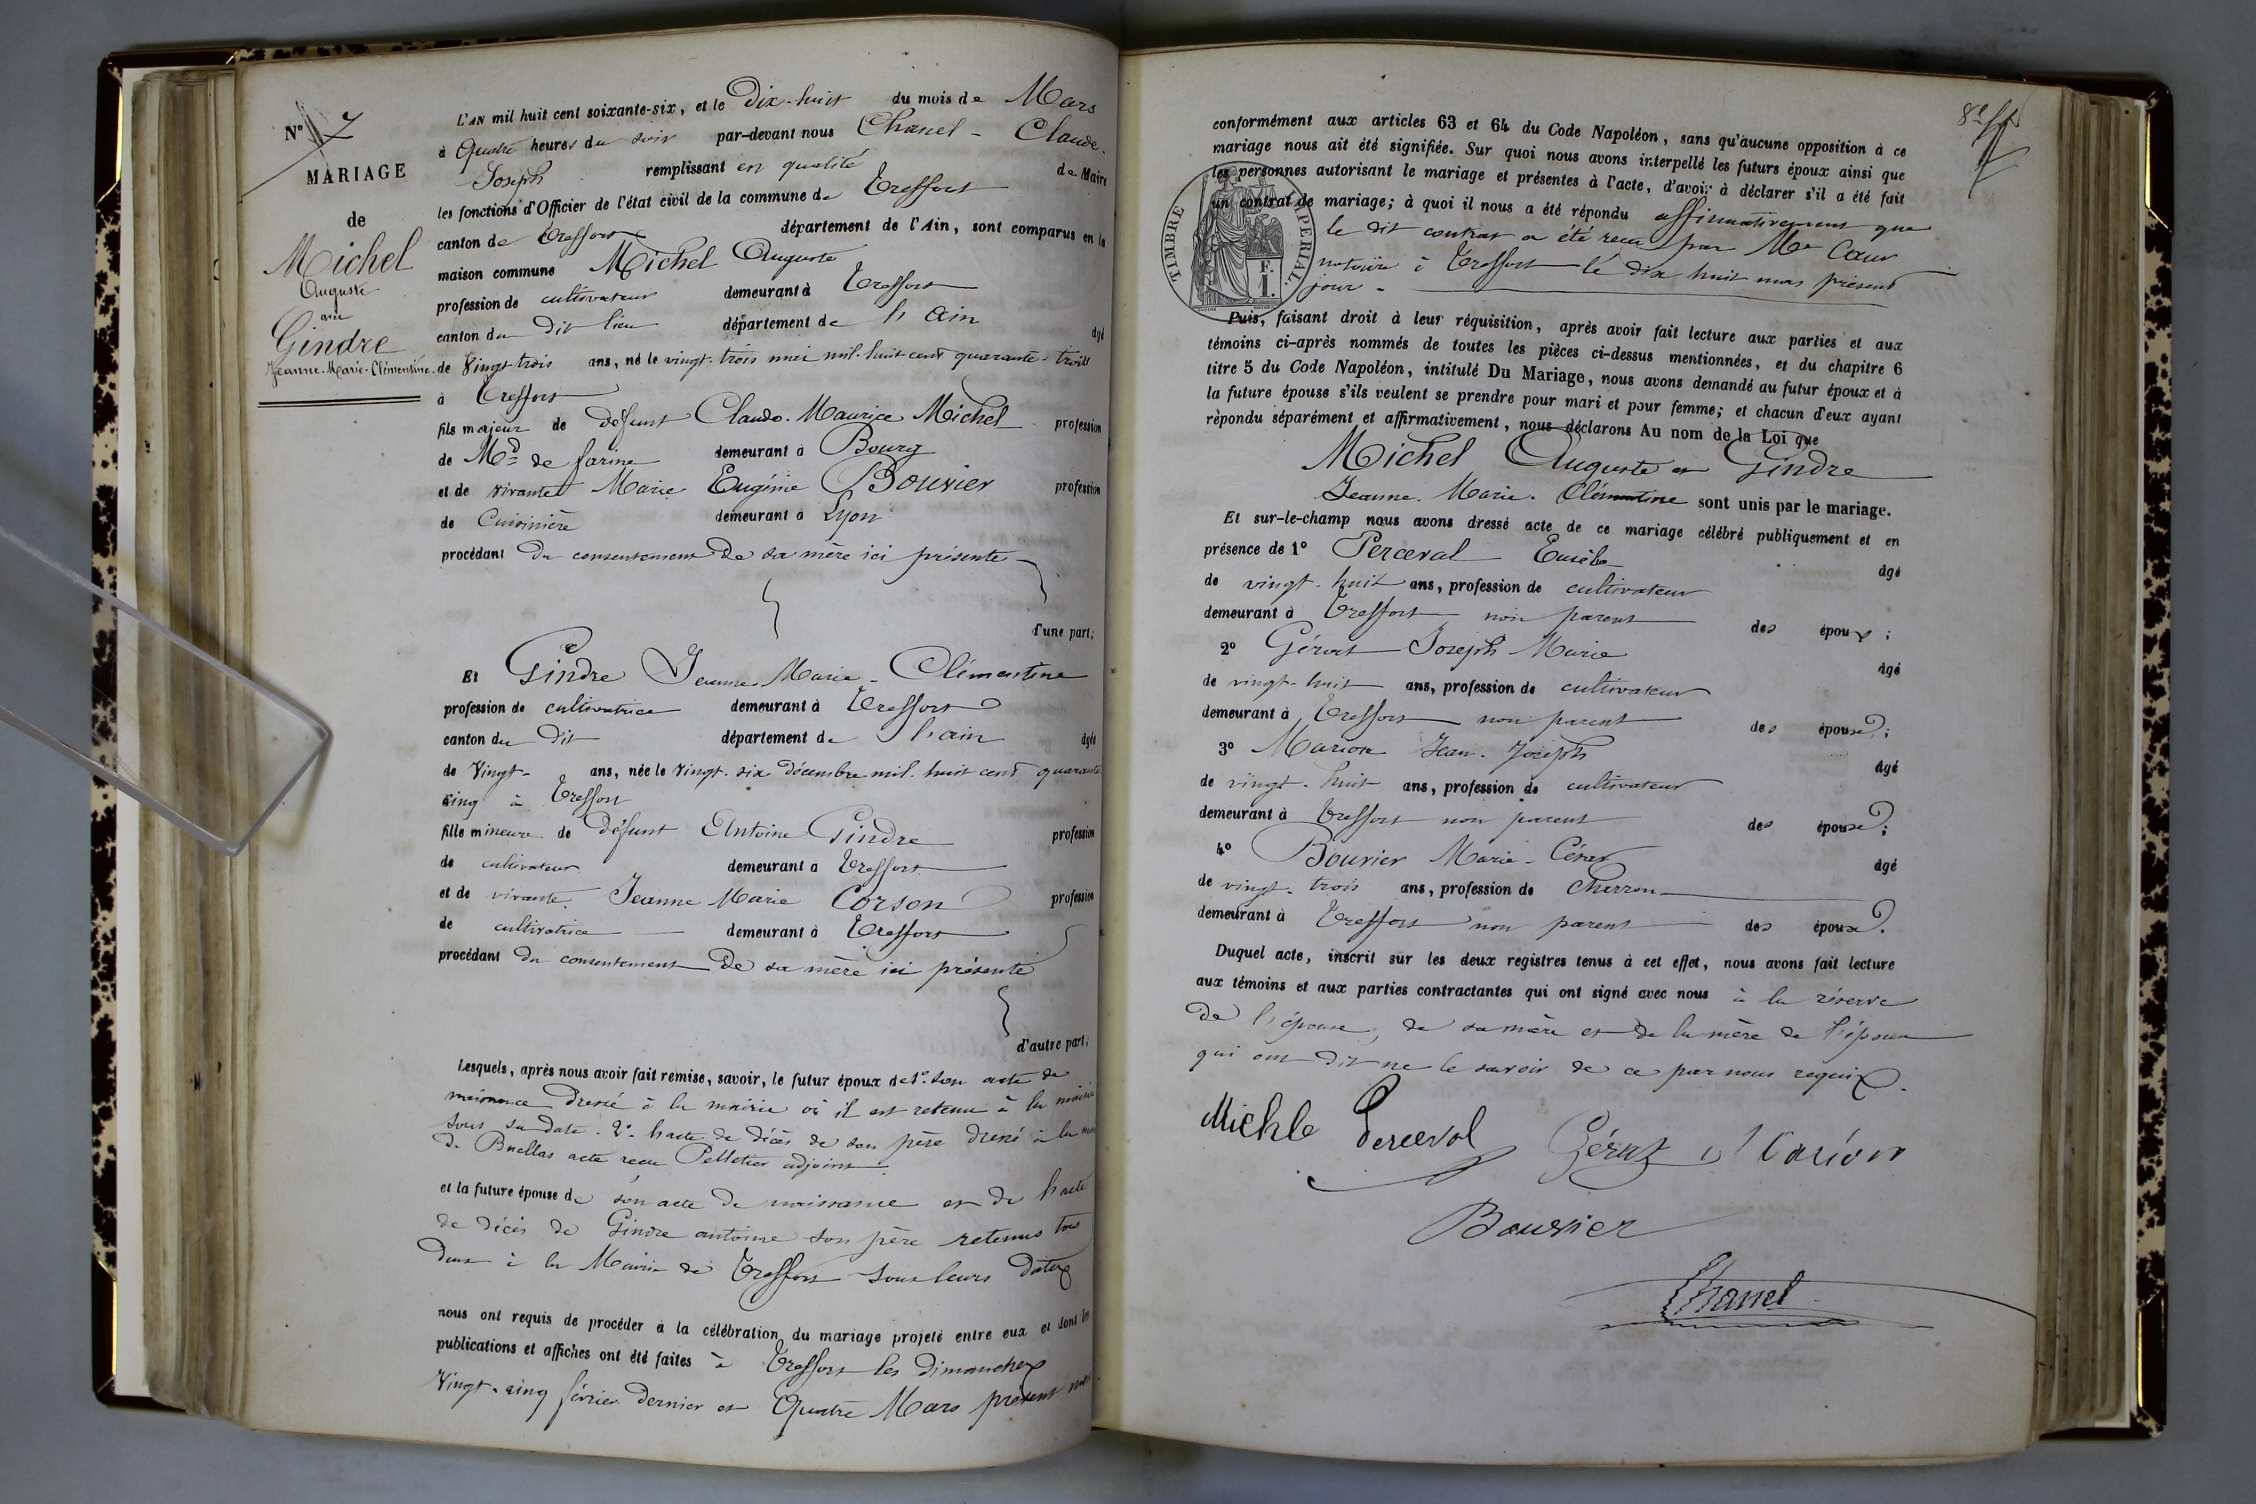 N° 7
MARIAGE
de
Michel
Auguste
avec
Gindre
Jeanne-Marie-Clémentine.
L'AN mil huit cent soixante-six, et le Dix-huit du mois de Mars
à Quatre heures du soir par-devant nous Chanel - Claude-
Joseph remplissant en qualité de Maire
les fonctions d'Officier de l'état civil de la commune de Treffort
canton de Treffort département de l'Ain, sont comparus en la
maison commune Michel Auguste
profession de cultivateur demeurant à Treffort
canton du dit lieu département de l'Ain âgé
de Vingt-trois ans, né le vingt-trois mai mil-huit cent quarante-trois
à Treffort
fils majeur de défunt Claude-Maurice Michel profession
de Md de farine demeurant à Bourg
et de vivante Marie Eugénie Bouvier profession
de Cuisinière demeurant à Lyon
procédant du consentement de sa mère ici présente
d'une part;
Et Gindre Jeanne-Marie-Clémentine
profession de cultivatrice demeurant à Treffort
canton du dit département de l'ain âgée
de Vingt- ans, née le Vingt-six décembre mil-huit cent quarante
cinq à Treffort
fille mineure de défunt Antoine Gindre profession
de cultivateur demeurant à Treffort
et de vivante Jeanne Marie Corson profession
de cultivatrice demeurant à Treffort
procédant du consentement de sa mère ici présente
d'autre part;
Lesquels, après nous avoir fait remise, savoir, le futur époux de 1° son acte de
naissance dressé à la mairie où il est retenu à la mairie
sous sa date. 2° l'acte de décès de son père dressé à la
de Buellas acte reçu Pelletier adjoint
et la future épouse de son acte de naissance et de l'acte
de décès de Gindre antoine son père retenus tous
deux à la Mairie de Treffort sous leurs dates
nous ont requis de procéder à la célébration du mariage projeté entre eux et dont les
publications et affiches ont été faites à Treffort les dimanches
Vingt-cinq février dernier et Quatre Mars présent mois
conformément aux articles 63 et 64 du Code Napoléon, sans qu'aucune opposition à ce
mariage nous ait été signifiée. Sur quoi nous avons interpellé les futurs époux ainsi que
les personnes autorisant le mariage et présentes à l'acte, d'avoir à déclarer s'il a été fait
un contrat de mariage; à quoi il nous a été répondu affirmativement que
le dit contrat a été reçu par Me Cœur
notaire à Treffort le dix huit mars présent
jour -
TIMBRE IMPERIAL.
F.
1.
Puis, faisant droit à leur réquisition, après avoir fait lecture aux parties et aux
témoins ci-après nommés de toutes les pièces ci-dessus mentionnées, et du chapitre 6
titre 5 du Code Napoléon, intitulé Du Mariage, nous avons demandé au futur époux et à
la future épouse s'ils veulent se prendre pour mari et pour femme; et chacun d'eux ayant
répondu séparément et affirmativement, nous déclarons Au nom de la Loi que
Michel Auguste et Gindre
Jeanne-Marie-Clémentine sont unis par le mariage.
Et sur-le-champ nous avons dressé acte de ce mariage célébré publiquement et en
présence de 1° Perceval Eusèbe âgé
de vingt-huit ans, profession de cultivateur
demeurant à Treffort non parent des époux;
2° Gérat Joseph Marie âgé
de vingt-huit ans, profession de cultivateur
demeurant à Treffort non parent des époux;
3° Marion Jean-Joseph âgé
de vingt-huit ans, profession de cultivateur
demeurant à Treffort non parent des époux;
4° Bouvier Marie-César âgé
de vingt-trois ans, profession de Charron
demeurant à Treffort non parent des époux.
Duquel acte, inscrit sur les deux registres tenus à cet effet, nous avons fait lecture
aux témoins et aux parties contractantes qui ont signé avec nous à la réserve
de l'épouse, de sa mère et de la mère de l'époux
qui ont dit ne le savoir de ce par nous requis.
Michle Perceval Gérat Marion
Bouvier
Chanel